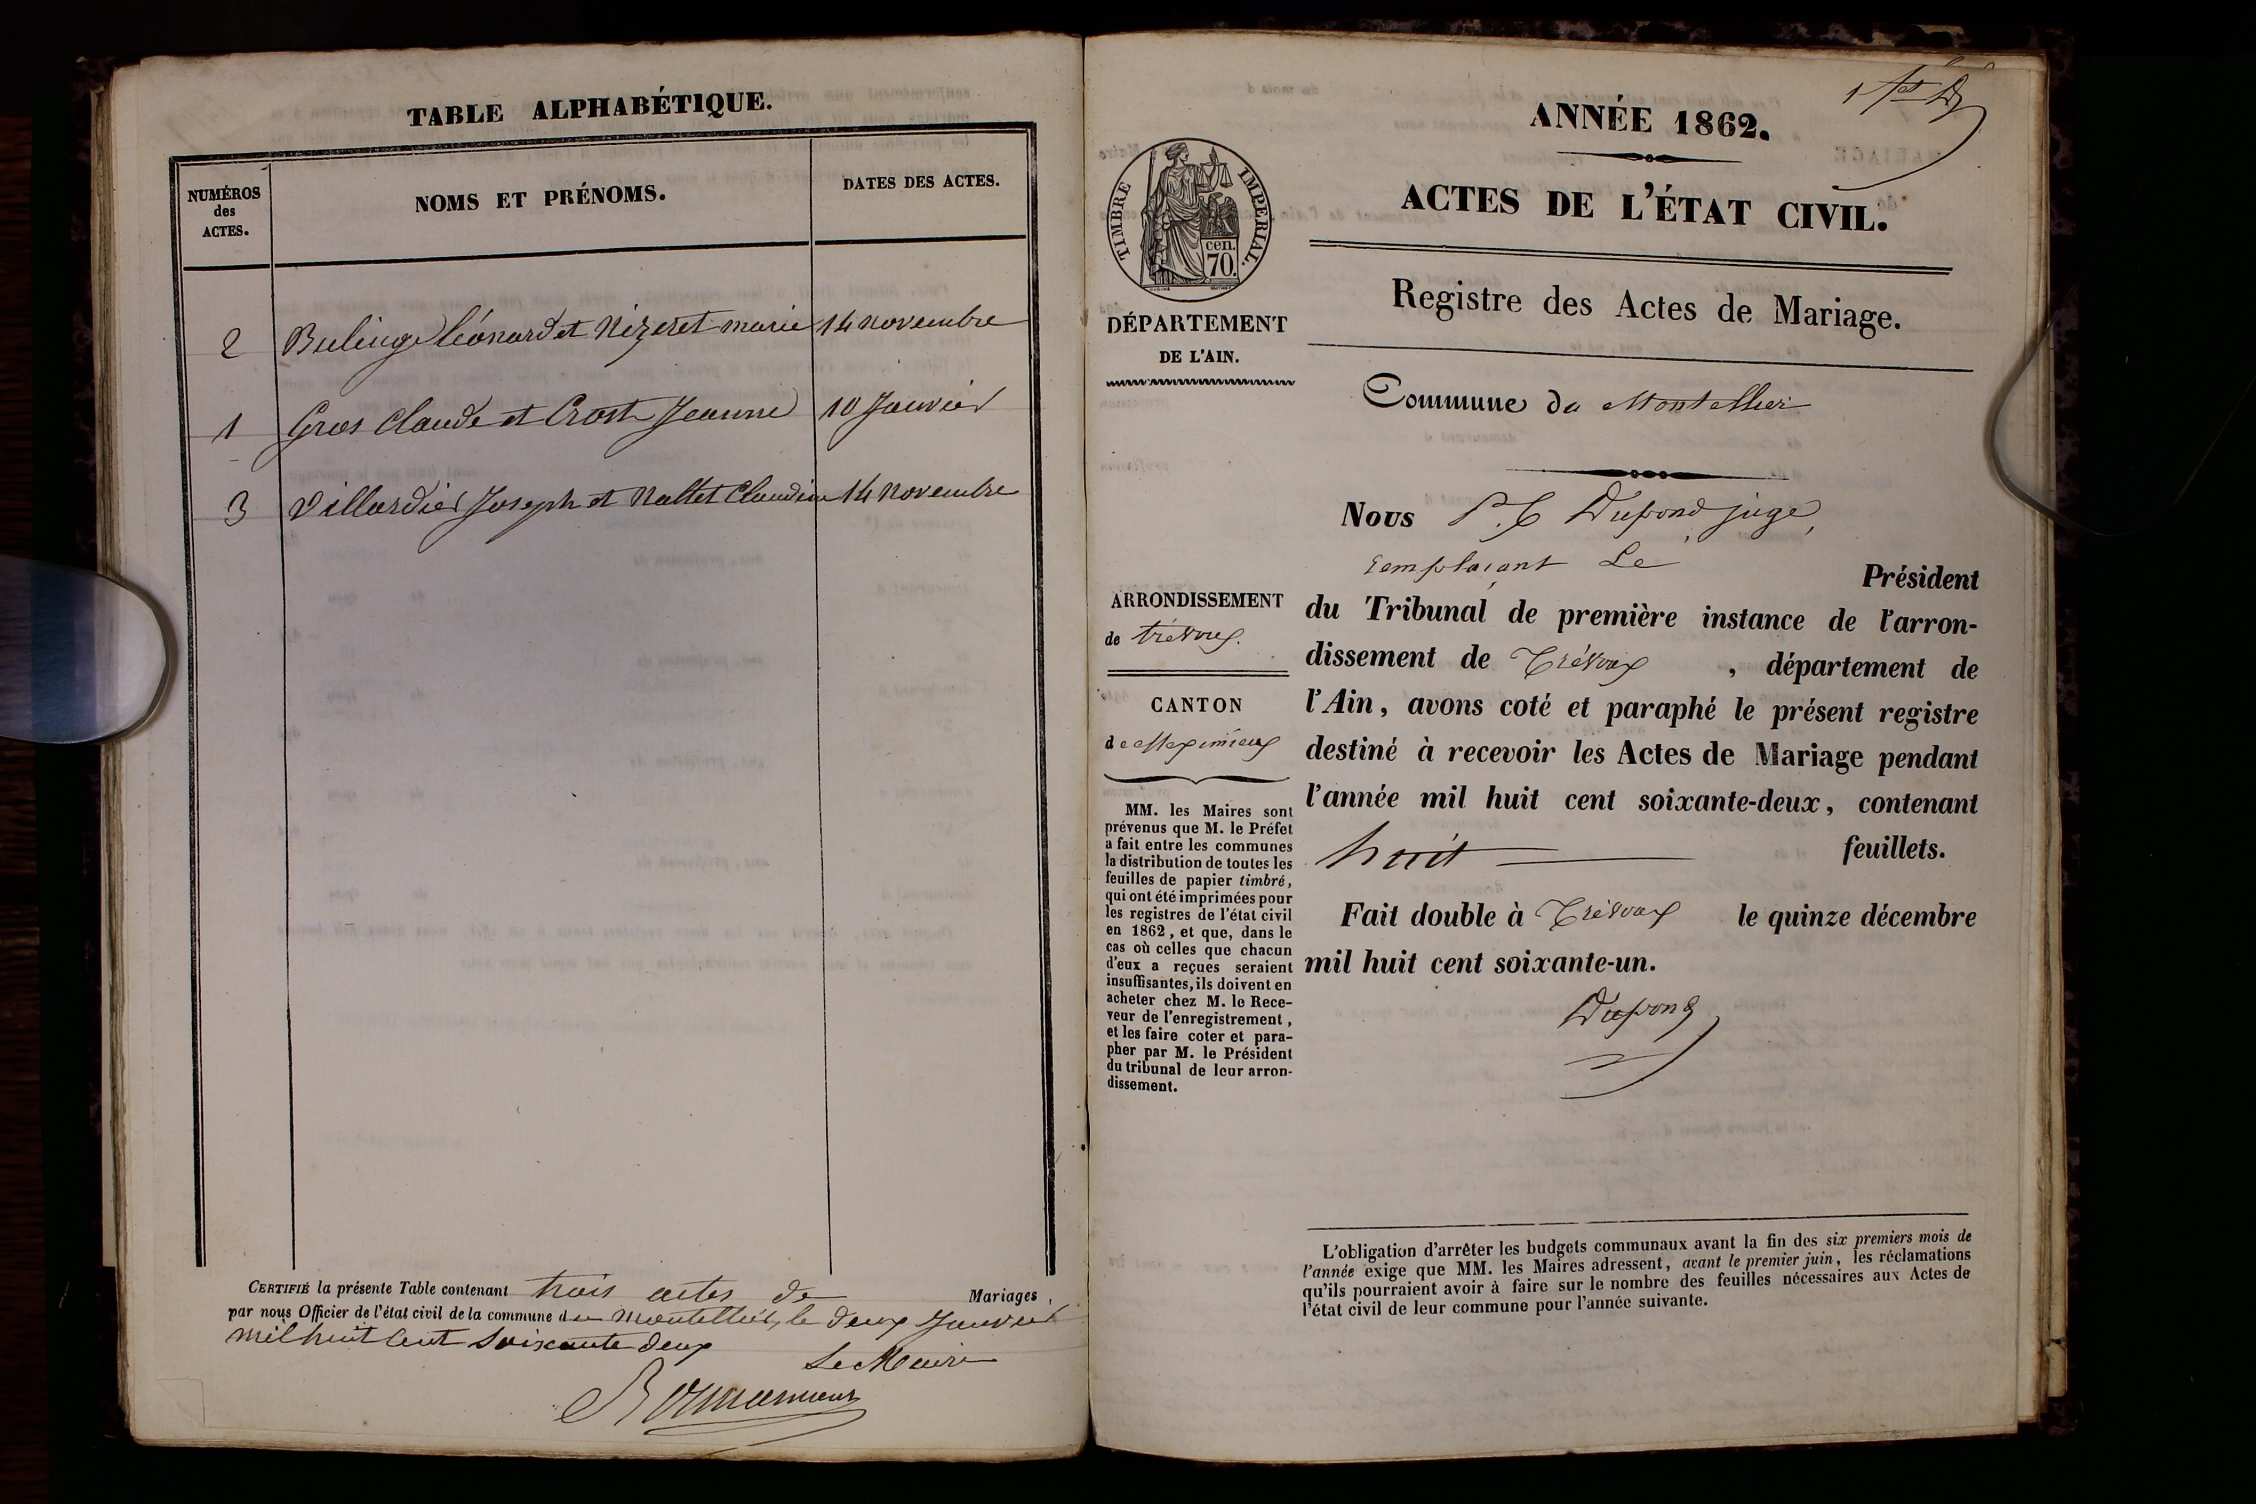 TABLE ALPHABÉTIQUE.
NUMÉROS
des
ACTES.
NOMS ET PRÉNOMS.
DATES DES ACTES.
2 Bulinge léonard et Nizeret marie 14 novembre
1 Gros Claude et Crost Jeanne 10 Janvier
3 Villardier Joseph et Nallet Claudine 14 novembre
CERTIFIÉ la présente Table contenant trois actes de Mariages,
par nous Officier de l'état civil de la commune du Montellier, le deux Janvier
mil huit cent soixante deux
Le Maire
ANNÉE 1862.
ACTES DE L'ÉTAT CIVIL.
Registre des Actes de Mariage.
Commune du Montellier
TIMBRE IMPERIAL.
cen.
70.
DÉPARTEMENT
DE L'AIN.
ARRONDISSEMENT
de trévoux.
CANTON
de Meximieux
MM. les Maires sont
prévenus que M. le Préfet
a fait entre les communes
la distribution de toutes les
feuilles de papier timbré,
qui ont été imprimées pour
les registres de l'état civil
en 1862, et que, dans le
cas où celles que chacun
d'eux a reçues seraient
insuffisantes, ils doivent en
acheter chez M. le Rece-
veur de l'enregistrement,
et les faire coter et para-
pher par M. le Président
du tribunal de leur arron-
dissement.
Nous Dupond juge,
remplaçant Le Président
du Tribunal de première instance de l'arron-
dissement de Trévoux, département de
l'Ain, avons coté et paraphé le présent registre
destiné à recevoir les Actes de Mariage pendant
l'année mil huit cent soixante-deux, contenant
huit feuillets.
Fait double à Trévoux le quinze décembre
mil huit cent soixante-un.
Dupond
L'obligation d'arrêter les budgets communaux avant la fin des six premiers mois de
l'année exige que MM. les Maires adressent, avant le premier juin, les réclamations
qu'ils pourraient avoir à faire sur le nombre des feuilles nécessaires aux Actes de
l'état civil de leur commune pour l'année suivante.